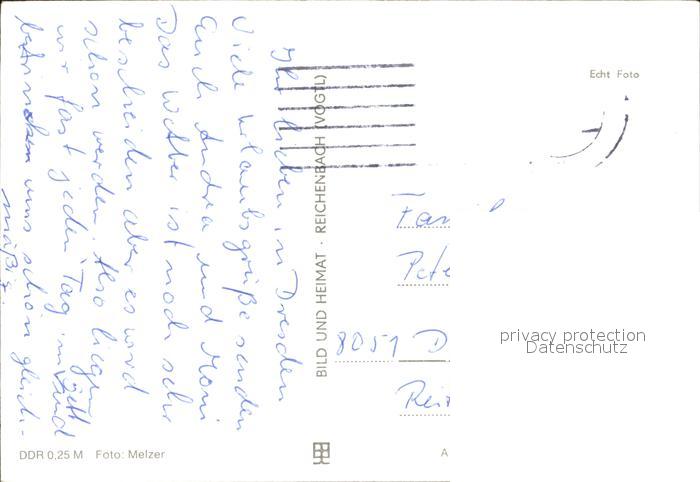 Ihr Lieben in Dresden
Viele Urlaubsgrüße senden
Euch Andrea und Moni
Das Wetter ist noch sehr
bescheiden aber es wird
schon werden. Also liegen
wir fast jeden Tag im Bett und
betrinken uns schön gleich-
mäßig.
BILD UND HEIMAT · REICHENBACH (VOGTL)
Echt Foto
Fam
Pete
8051 D
Rei
privacy protection
Datenschutz
DDR 0,25 M Foto: Melzer
A